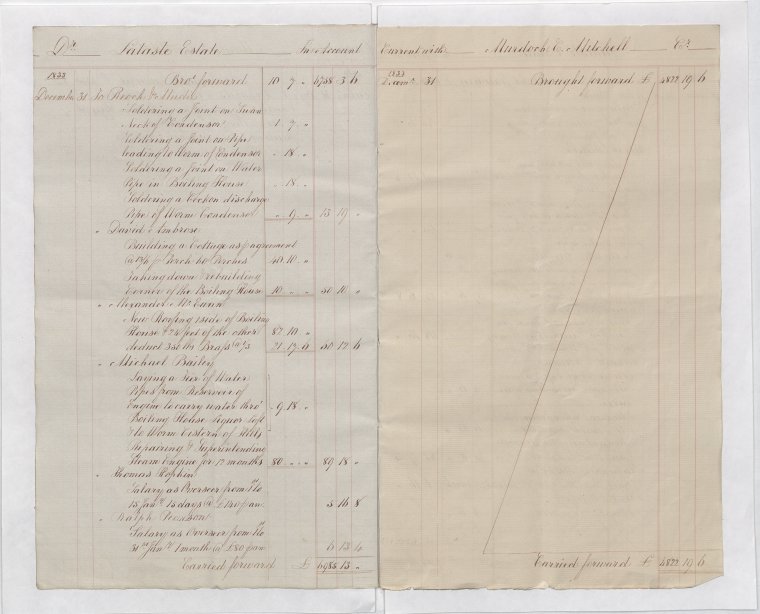 Dr Estate In Account
1833
Bro.t forward 10 7 " 6738 3 6
December 31 To Rock &
Soldering a Joint on Swan
Neck of Condensor 1 7 "
Soldering a Joint on Pipe
leading to Worm of Condensor " 18 "
Soldering a Joint on Water
Pipe in Boiling House " 18 "
Soldering a Cock on discharge
Pipe of Worm Condensor " 9 " 13 19 "
" David Ambrose
Building a Cottage as p agreement
p Perch 60 Perches 40 10 "
Taking down & rebuilding
Corner of the Boiling House 10 " " 50 10 "
" Alexander McCunn
New Roofing 1 side of Boiling
House & 24 feet of the other 82 10 "
deduct lbs Brass 50 12 6
" Michael Bailey
Laying a Tier of Water
Pipes from Reservoir of
Engine to carry water thro'
Boiling House Liquor Loft
& to Worm Cistern of Stills 9 18 "
Repairing & Superintending
Steam Engine for 12 months 80 " " 89 18 "
" Thomas
Salary as Overseer from 1 to
15 Jany 15 days @ £140 pan 5 16 8
" Ralph
Salary as Overseer from 1 to
31st Jany 1 month @ £80 pan 6 13 4
Carried forward £ 6955 13 "
Current with Murdoch C. Mitchell Cr
1833
Decemr 31 Brought forward £ 4822 19 6
Carried forward £ 4822 19 6